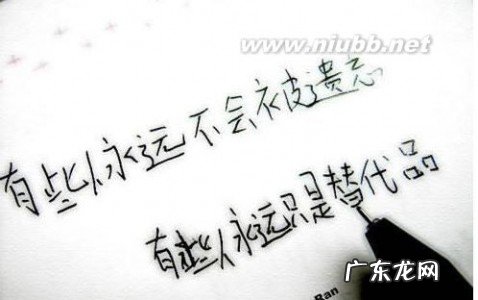 www.niubb.net
有些人永远不会被遗忘
有些人永远只是替代品
Ran
广东龙网